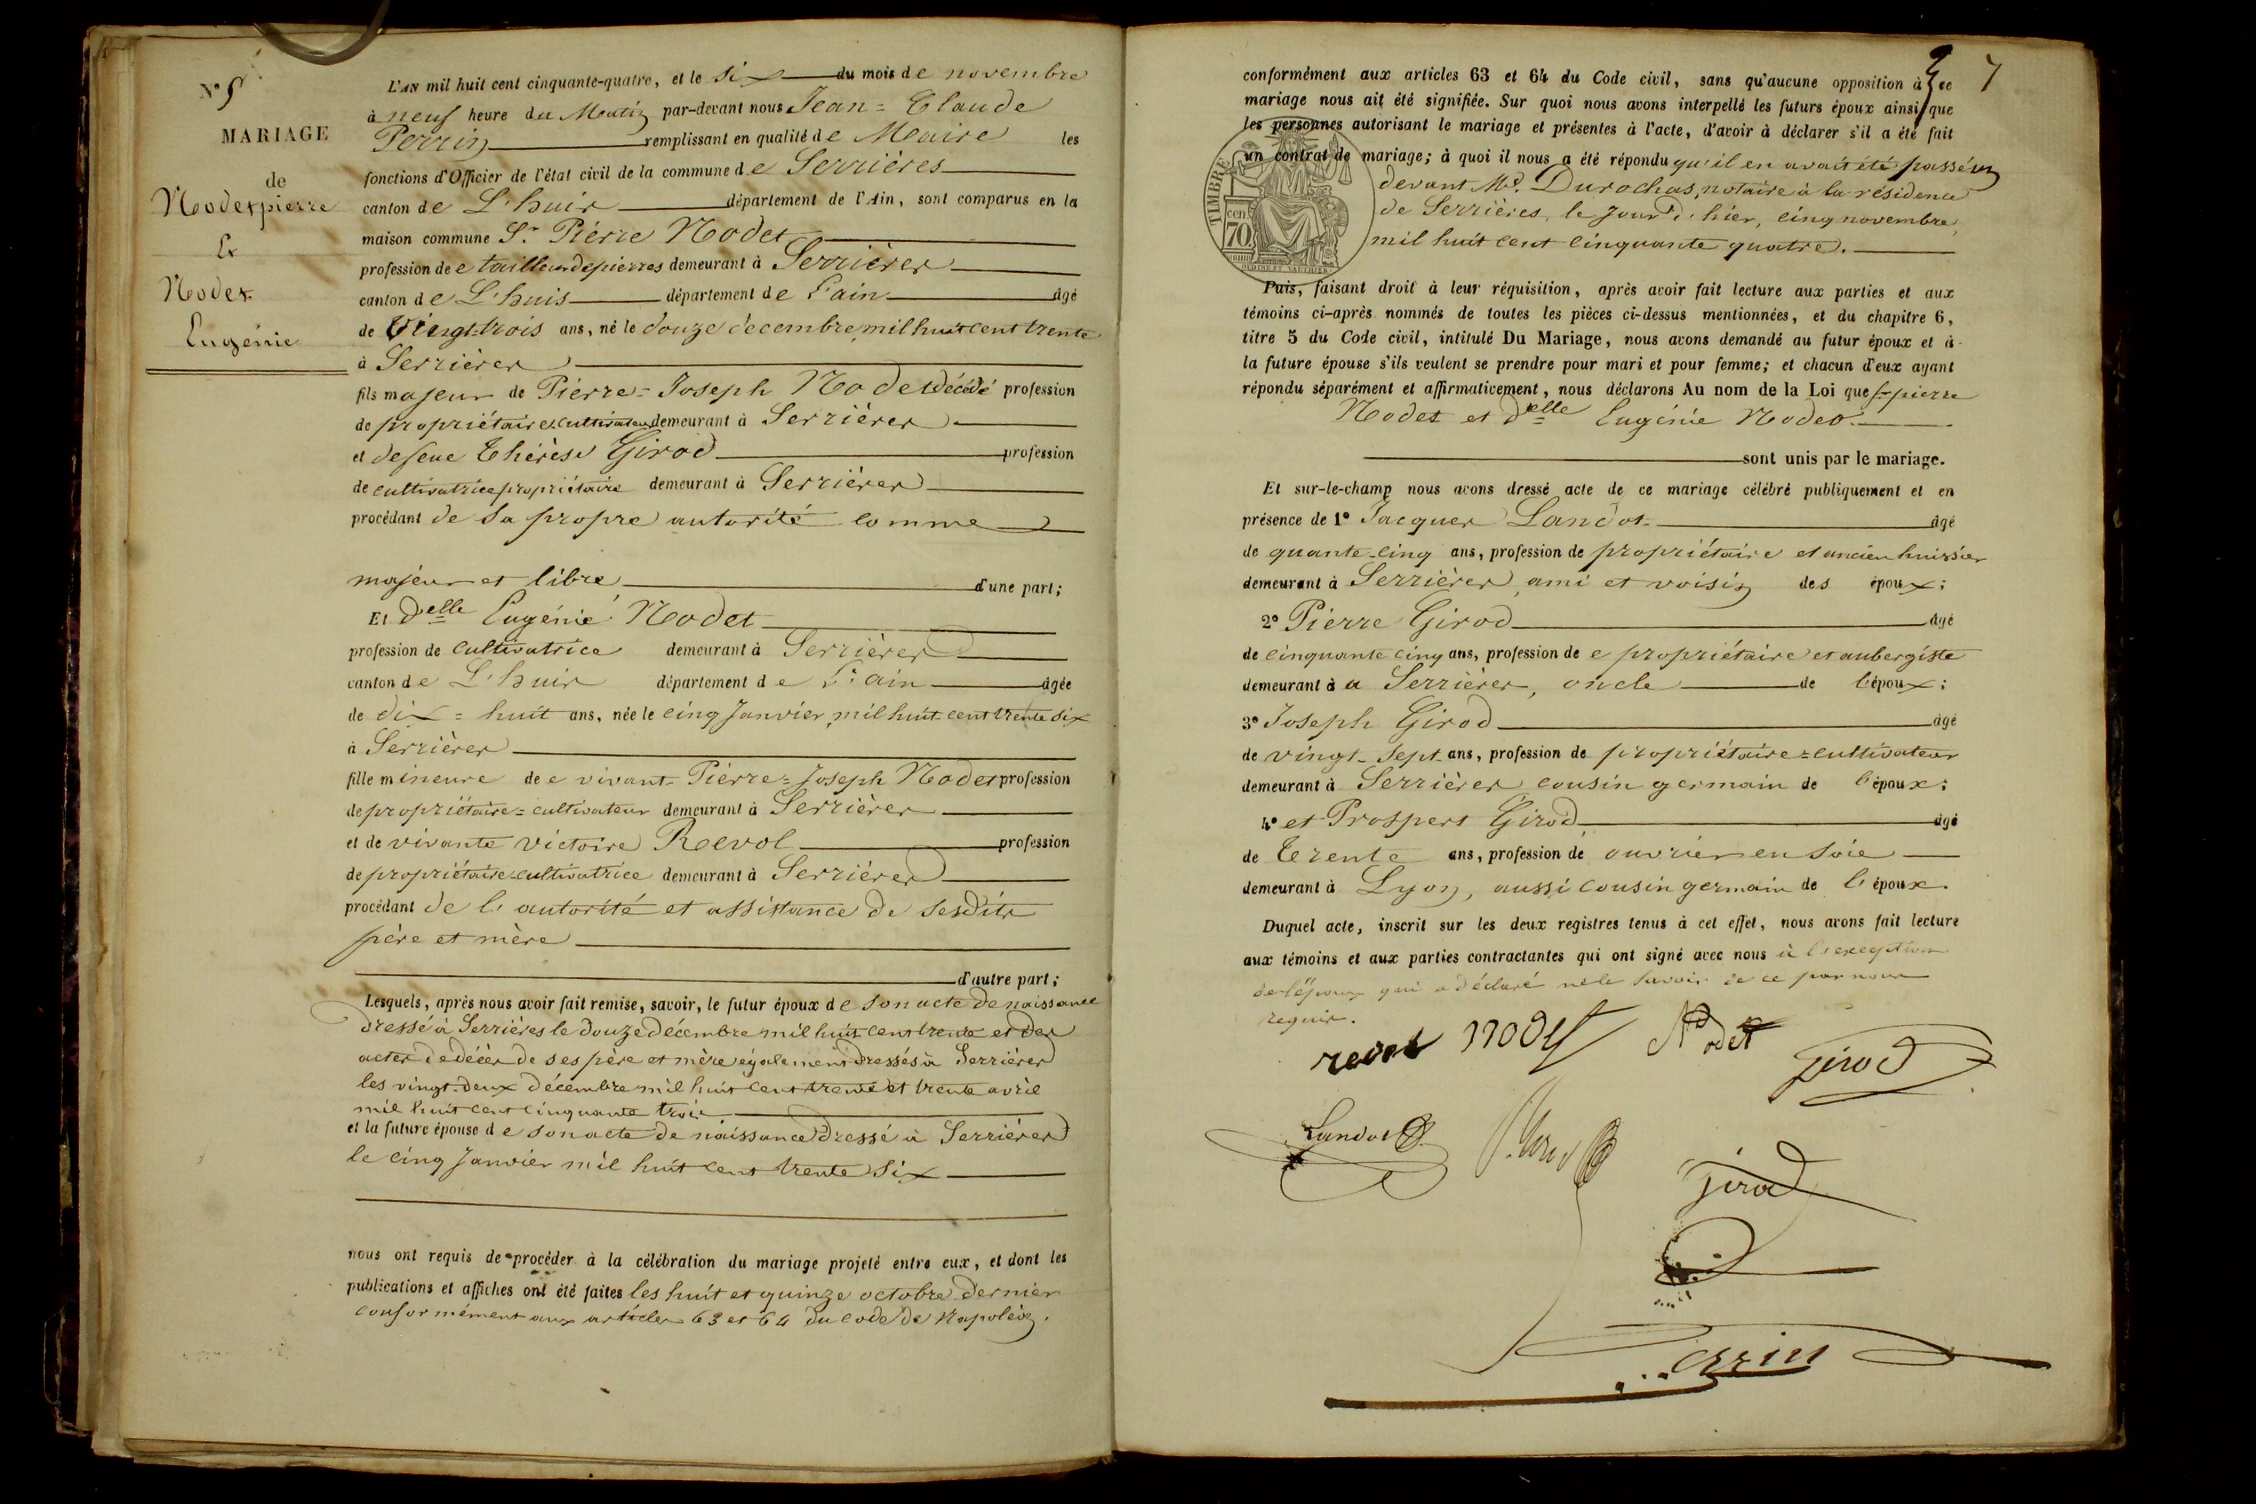 N° 5
MARIAGE
de
Nodet pierre
Et
Nodet
Eugénie
L'AN mil huit cent cinquante-quatre, et le six du mois de novembre
à neuf heure du Matin par-devant nous Jean=Claude
Perrin remplissant en qualité de Maire les
fonctions d'Officier de l'état civil de la commune de Serrières
canton de L'huis département de l'Ain, sont comparus en la
maison commune Sr. Pièrre Nodet
profession de e tailleur de pierres demeurant à Serrières
canton de L'huis département de l'ain âgé
de Vingt-trois ans, né le douze decembre mil huit cent trente
à Serrières
fils majeur de Pièrre=Joseph Nodet décédé profession
de propriétaire cultivateur demeurant à Serrières
et de feue Thérèse Girod profession
de cultivatrice propriétaire demeurant à Serrières
procédant de sa propre autorité comme
majeur et libre d'une part;
Et Delle Eugénie Nodet
profession de cultivatrice demeurant à Serrières
canton de L'huis département de l'ain âgée
de dix=huit ans, née le cinq Janvier mil huit cent trente six
à Serrières
fille mineure de e vivant Pièrre=Joseph Nodet profession
de propriétaire=cultivateur demeurant à Serrières
et de vivante victoire Revol profession
de propriétaire=cultivatrice demeurant à Serrières
procédant de l'autorité et assistance de sesdits
père et mère
d'autre part;
Lesquels, après nous avoir fait remise, savoir, le futur époux de son acte de naissance
dressé à Serrières le douze décembre mil huit cent trente et des
actes de décès de ses père et mère également dressés à Serrières
les vingt-deux décembre mil huit cent trente et trente avril
mil huit cent cinquante trois
et la future épouse de son acte de naissance dressé à Serrières
le cinq Janvier mil huit cent trente six
nous ont requis de procéder à la célébration du mariage projeté entre eux, et dont les
publications et affiches ont été faites les huit et quinze octobre dernier
conformément aux articles 63 et 64 du code de Napoléon.
7
conformément aux articles 63 et 64 du Code civil, sans qu'aucune opposition à ce
mariage nous ait été signifiée. Sur quoi nous avons interpellé les futurs époux ainsi que
les personnes autorisant le mariage et présentes à l'acte, d'avoir à déclarer s'il a été fait
un contrat de mariage; à quoi il nous a été répondu qu'il en avait été passé un
devant Me. Durochas, notaire à la résidence
de Serrières, le jour d'hier, cinq novembre,
mil huit cent cinquante quatre.
TIMBRE
cen.
70
Puis, faisant droit à leur réquisition, après avoir fait lecture aux parties et aux
témoins ci-après nommés de toutes les pièces ci-dessus mentionnées, et du chapitre 6,
titre 5 du Code civil, intitulé Du Mariage, nous avons demandé au futur époux et à
la future épouse s'ils veulent se prendre pour mari et pour femme; et chacun d'eux ayant
répondu séparément et affirmativement, nous déclarons Au nom de la Loi que Sr pierre
Nodet et Delle Eugénie Nodet
sont unis par le mariage.
Et sur-le-champ nous avons dressé acte de ce mariage célébré publiquement et en
présence de 1° Jacques Landot âgé
de quante-cinq ans, profession de propriétaire et ancien huissier
demeurant à Serrières, ami et voisin des époux;
2° Pierre Girod âgé
de cinquante cinq ans, profession de e propriétaire et aubergiste
demeurant à a Serrières, oncle de l'époux;
3° Joseph Girod âgé
de vingt-sept ans, profession de propriétaire=cultivateur
demeurant à Serrières cousin germain de l'époux;
4° et Prospert Girod âgé
de Trente ans, profession de ouvrier en soie
demeurant à Lyon, aussi cousin germain de l'époux.
Duquel acte, inscrit sur les deux registres tenus à cet effet, nous avons fait lecture
aux témoins et aux parties contractantes qui ont signé avec nous à l'exception
de l'époux qui a déclaré ne le savoir de ce par nous
requis.
revol nodet Nodet
girod
Landot
girod
Perrin